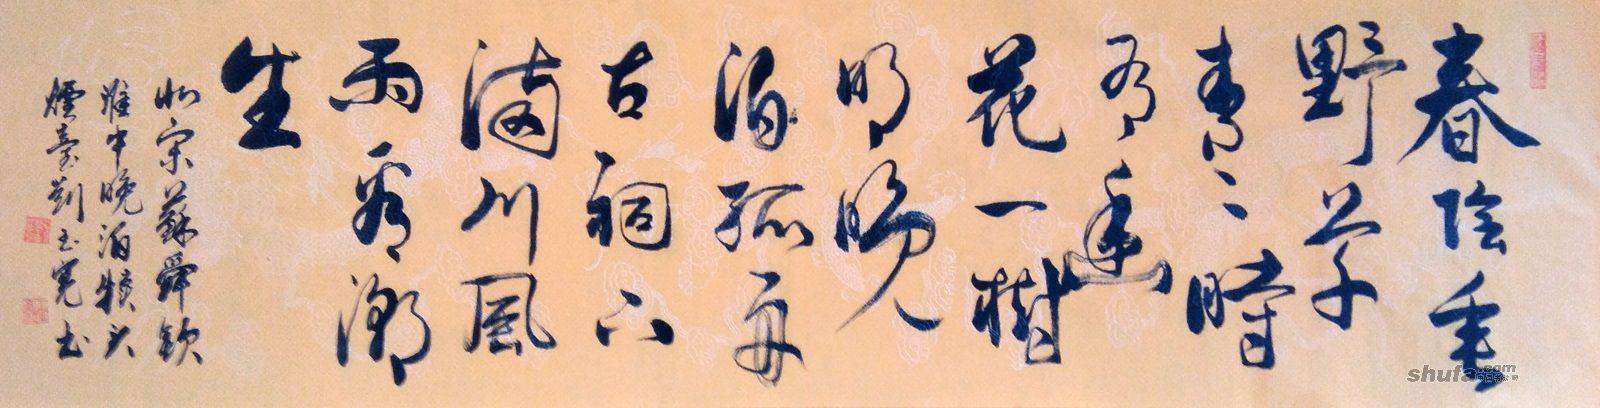 春陰垂
野草
青々時
有幽
花一樹
明晚
泊孤舟
古祠下
滿川風
雨看潮
生
北宋蘇舜欽
淮中晚泊犢头
煙臺劉玉寬书
shufa.com